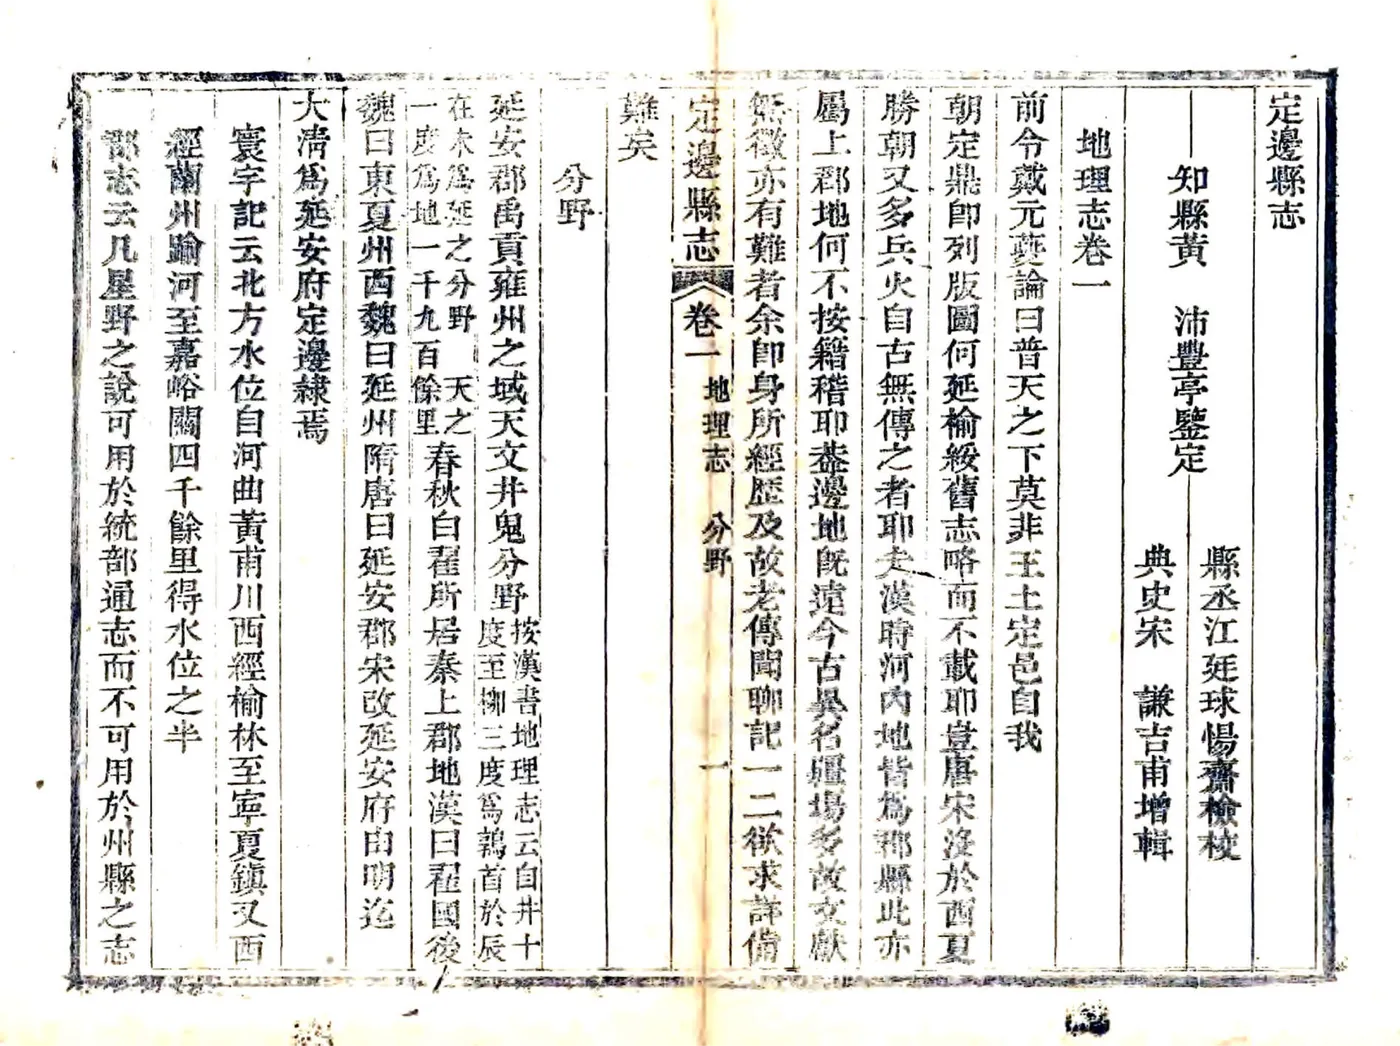 定邊縣志
知縣黃　沛豐亭鑒定
縣丞江廷球惕齋檢校
典史宋　謙吉甫增輯
地理志卷一
前令戴元夔論曰普天之下莫非王土定邑自我
朝定鼎卽列版圖何延榆綏舊志略而不載耶豈唐宋沒於西夏
勝朝又多兵火自古無傳之者耶夫漢時河內地皆爲郡縣此亦
屬上郡地何不按籍稽耶蓋邊地旣遠今古異名疆場多故文獻
無徵亦有難者余卽身所經歷及故老傳聞聊記一二欲求詳備
定邊縣志　卷一　地理志　分野　一
難矣
分野
延安郡禹貢雍州之域天文井鬼分野
按漢書地理志云自井十
度至柳三度爲鶉首於辰
在未爲延之分野　天之
一度爲地一千九百餘里
春秋白翟所居秦上郡地漢曰翟國後
魏曰東夏州西魏曰延州隋唐曰延安郡宋改延安府由明迄
大淸爲延安府定邊隸焉
寰宇記云北方水位自河曲黃甫川西經榆林至寧夏鎭又西
經蘭州踰河至嘉峪關四千餘里得水位之半
郡志云凡星野之說可用於統部通志而不可用於州縣之志